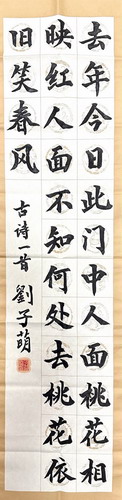 去年今日此门中人面桃花相
映红人面不知何处去桃花依
旧笑春风
古诗一首 劉子萌